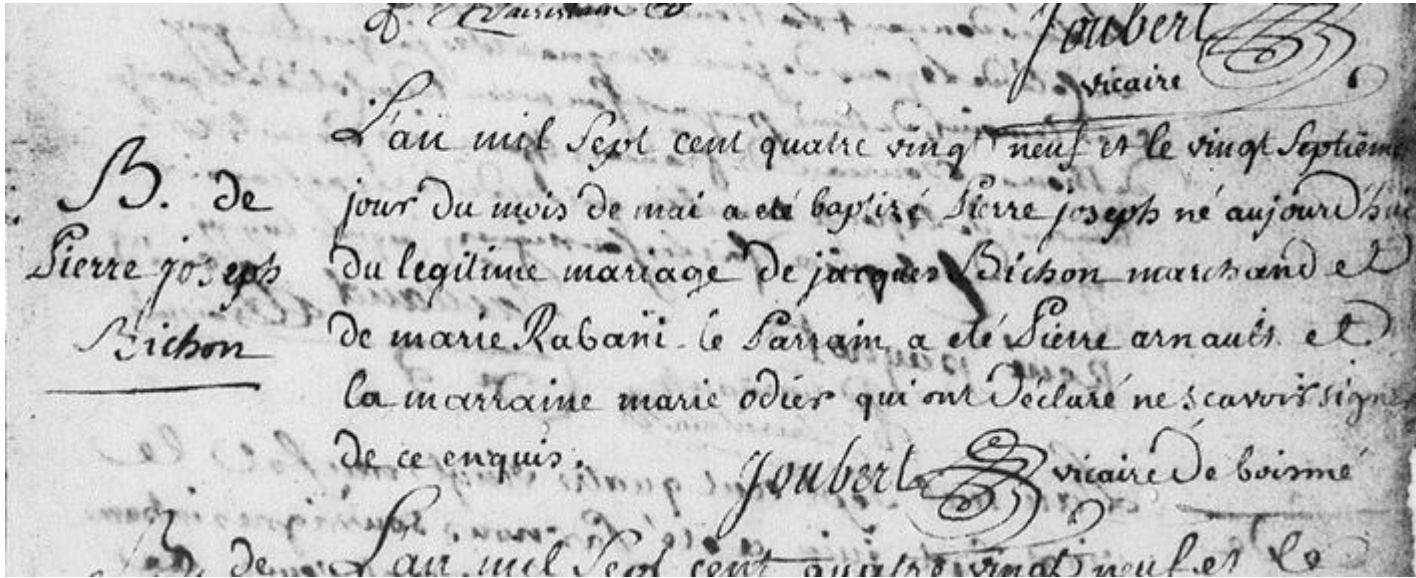 Joubert
vicaire
B. de
Pierre joseph
Bichon
L'an mil Sept cent quatre vingt neuf et le vingt Septième
jour du mois de mai a eté baptizé Pierre joseph né aujourd'hui
du legitime mariage de jacques Bichon marchand et
de marie Rabani le Parrain a eté Pierre arnault et
la marraine marie odier qui ont déclaré ne scavoir signer
de ce enquis.
Joubert vicaire de boismé
de
L'an mil Sept cent quatre vingt neuf et le